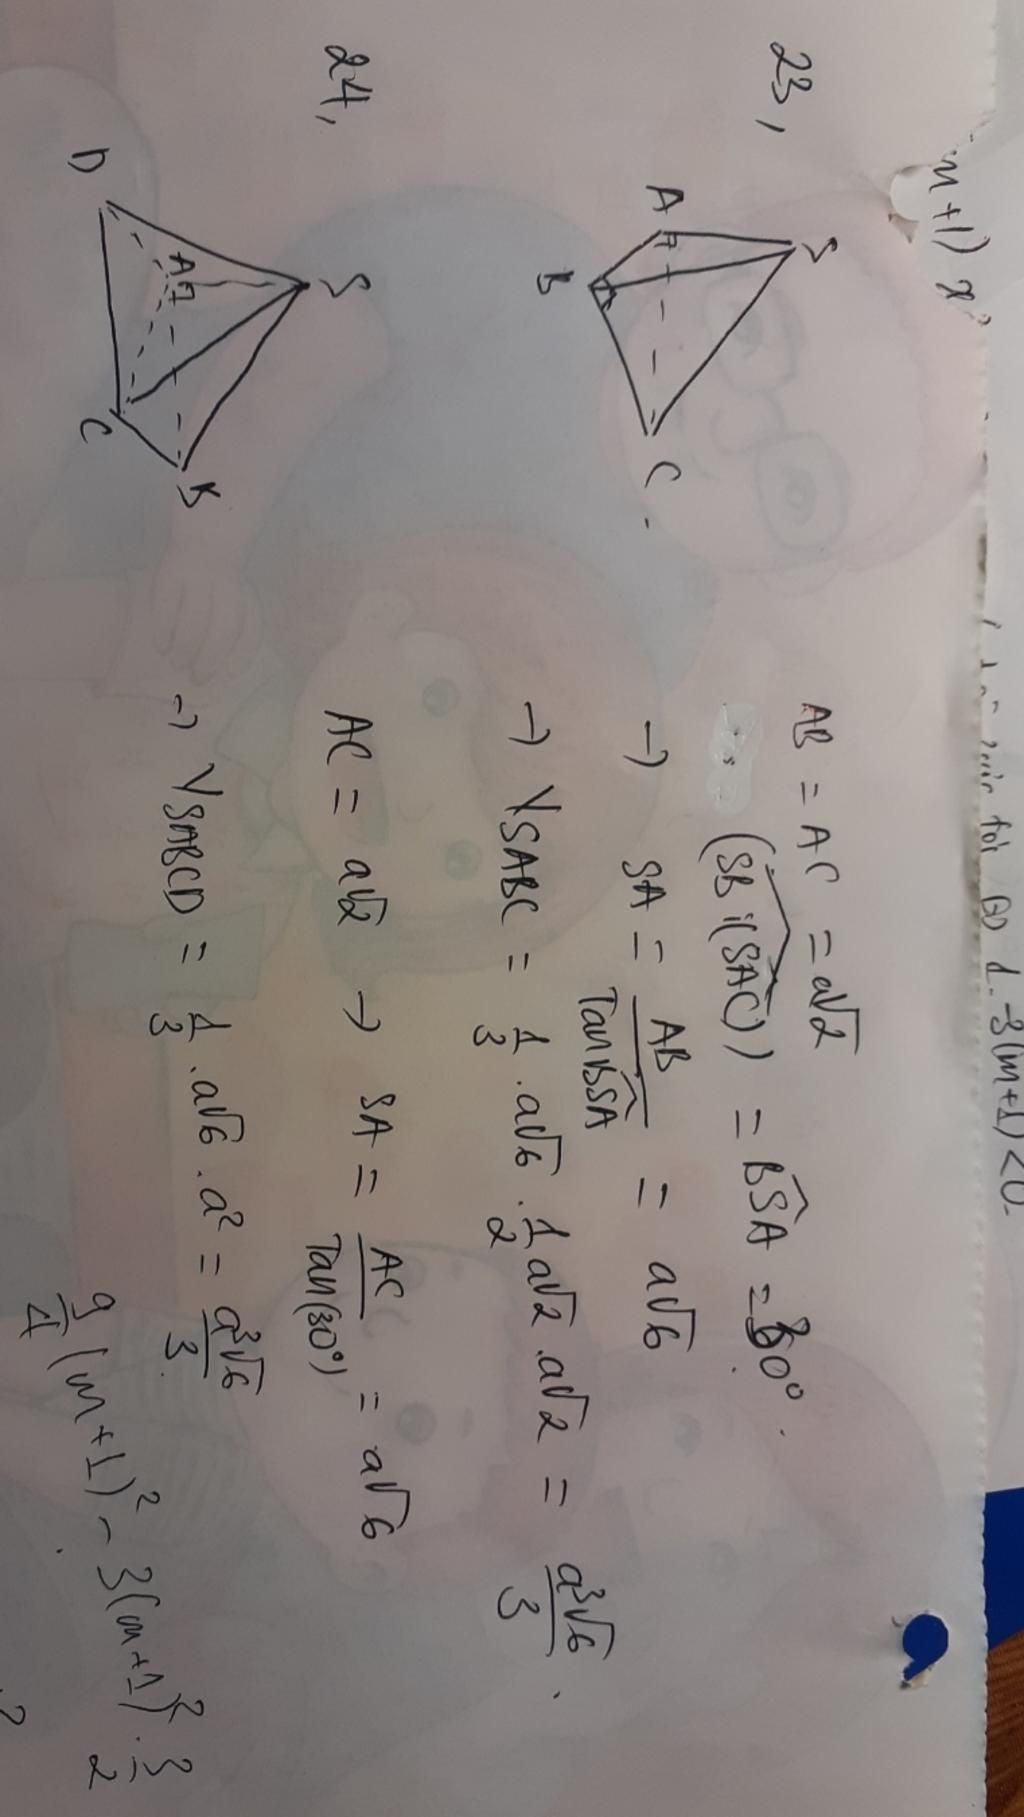 m+1) x²
-3(m+1) <0.
23,
S
A
B
C
AB = AC = a√2
(SB; (SAC)) = BSA = 30°
→ SA = AB / Tan BSA = a√6
→ VSABC = 1/3 . a√6 . 1/2 a√2 . a√2 = a³√6 / 3
24,
S
A
B
D
C
AC = a√2 → SA = AC / Tan(30°) = a√6
→ VSABCD = 1/3 . a√6 . a² = a³√6 / 3
9/4 (m+1)² - 3(m+1)² . 3/2